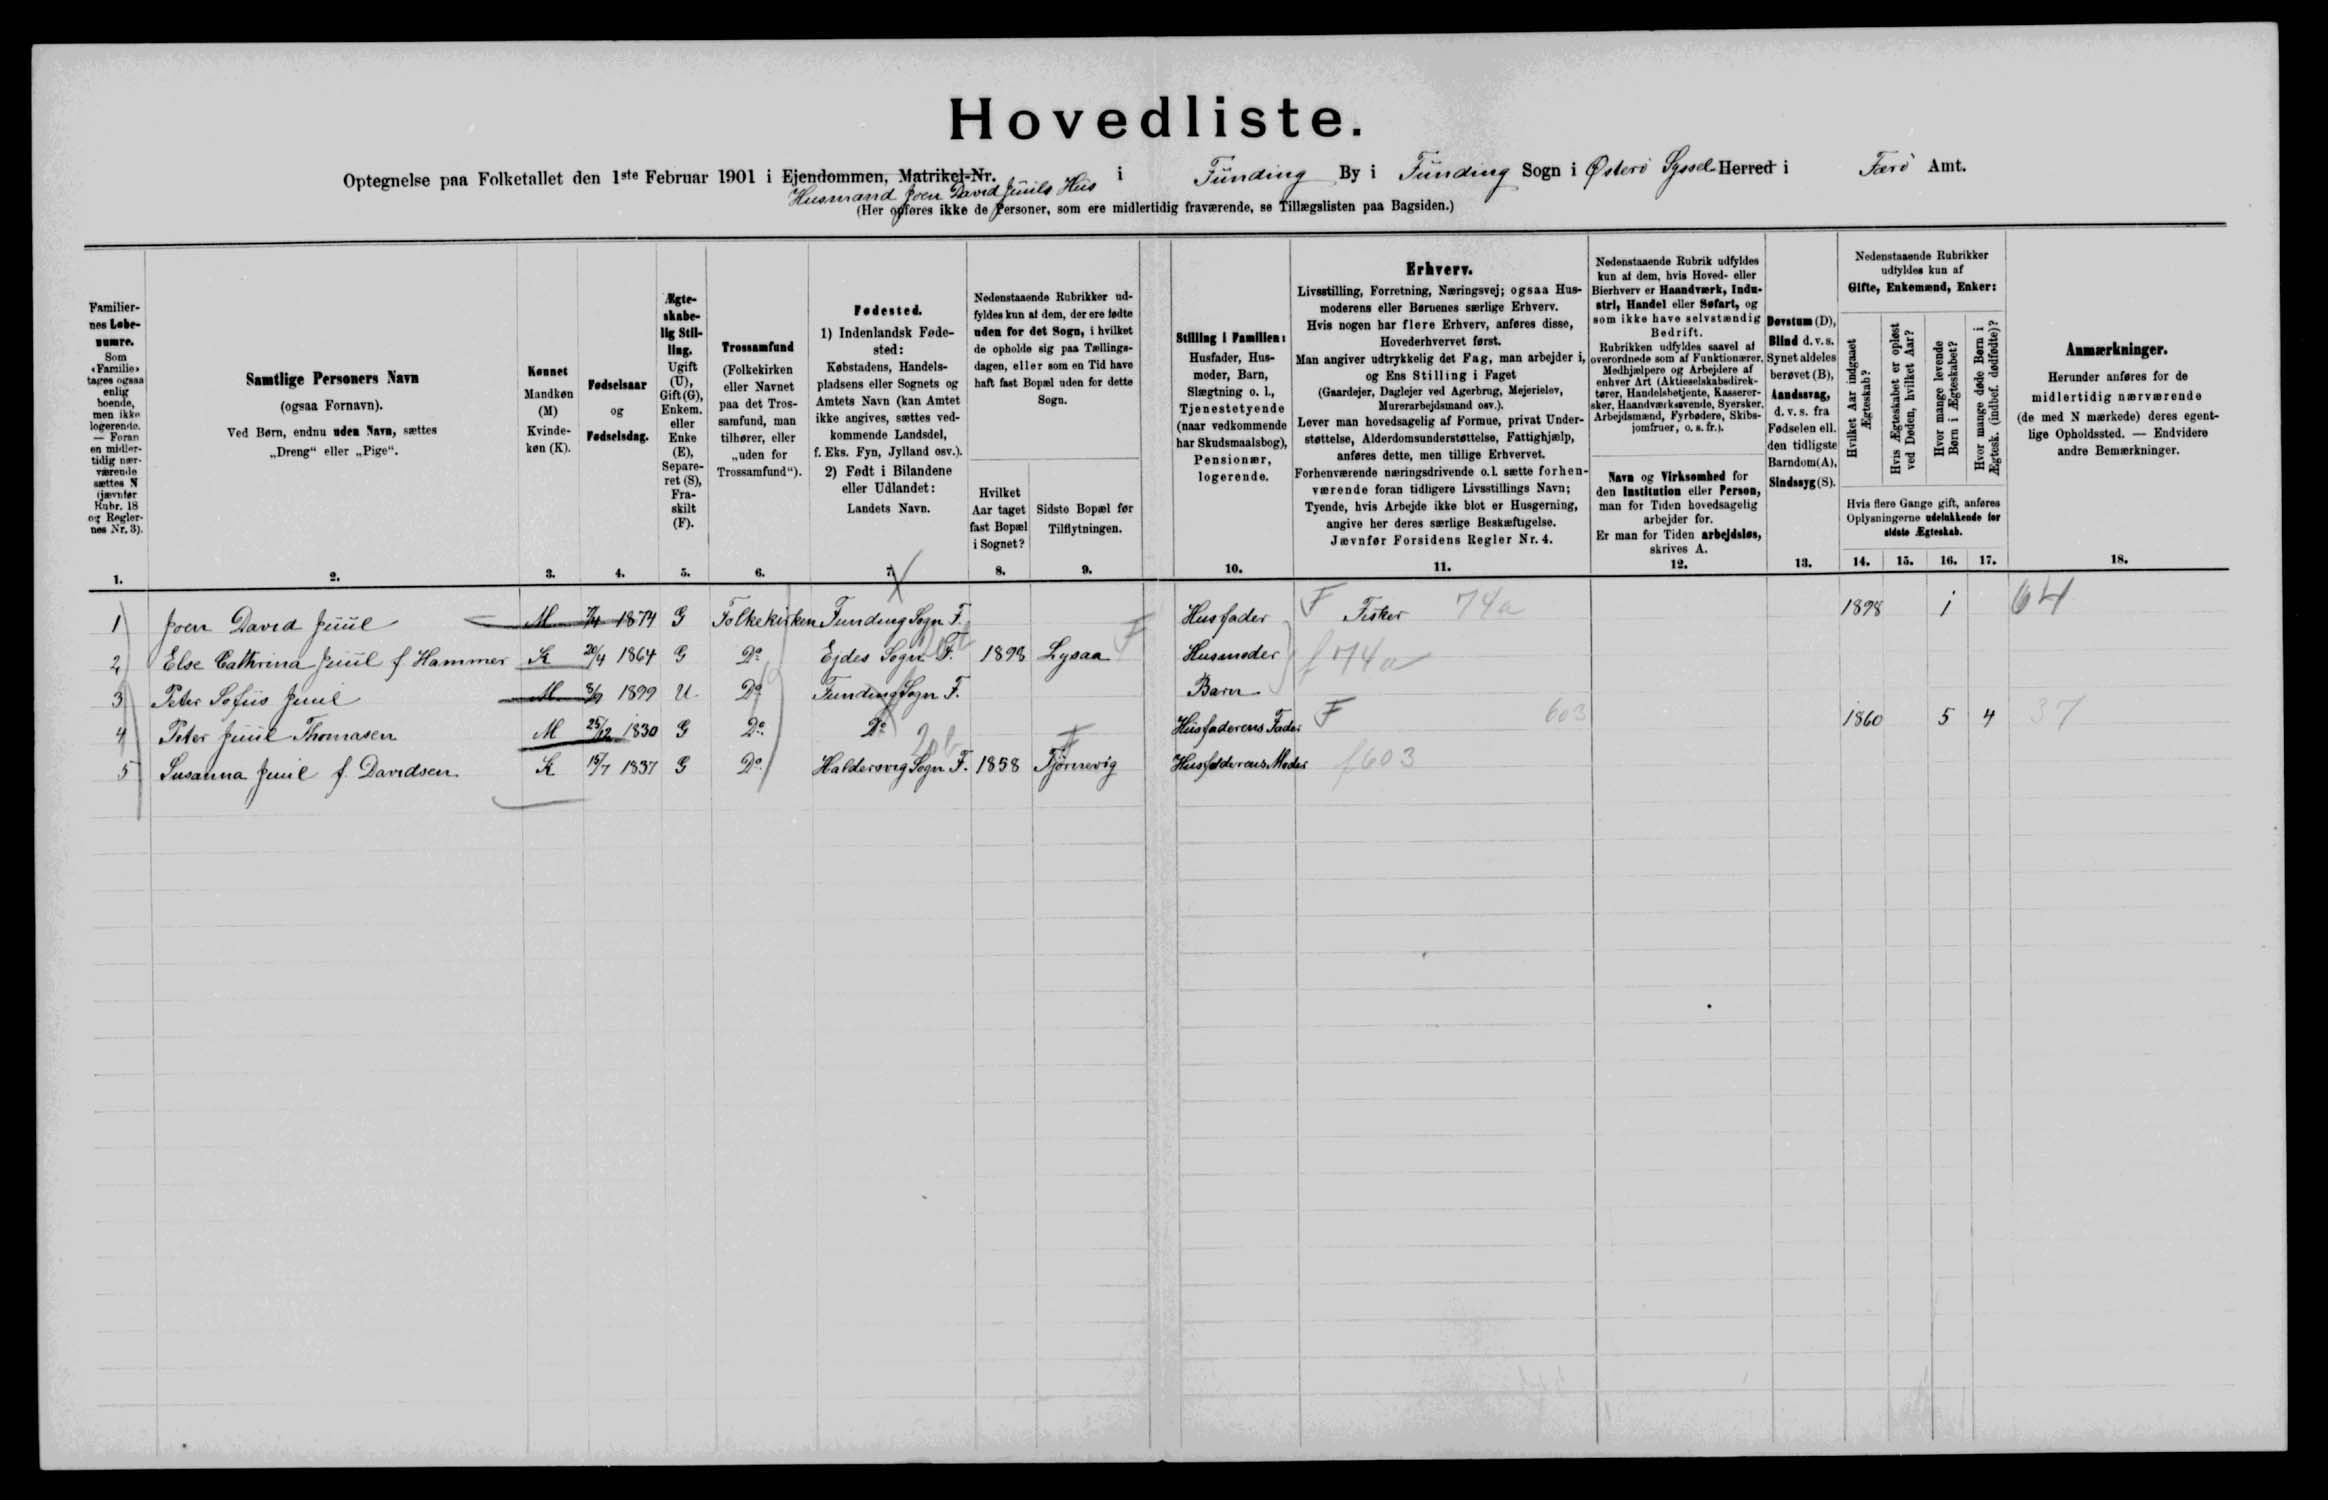 Hovedliste.
Optegnelse paa Folketallet den 1ste Februar 1901 i Ejendommen, Matrikel-Nr. i Funding By i Funding Sogn i Østerö Syssel Herred i Færö Amt.
Husmand Joen David Juuls Hus
(Her opføres ikke de Personer, som ere midlertidig fraværende, se Tillægslisten paa Bagsiden.)
Familiernes Løbenumre.
Som «Familie» tages ogsaa enlig boende, men ikke logerende. — Foran en midlertidig nærværende sættes N (jævnfør Rubr. 18 og Reglernes Nr. 3).
1.
Samtlige Personers Navn
(ogsaa Fornavn).
Ved Børn, endnu uden Navn, sættes
„Dreng“ eller „Pige“.
2.
Kønnet
Mandkøn (M)
Kvindekøn (K).
3.
Fødselsaar
og
Fødselsdag.
4.
Ægteskabelig Stilling.
Ugift (U), Gift (G), Enkem. eller Enke (E), Separeret (S), Fraskilt (F).
5.
Trossamfund
(Folkekirken eller Navnet paa det Trossamfund, man tilhører, eller „uden for Trossamfund“).
6.
Fødested.
1) Indenlandsk Fødested:
Købstadens, Handelspladsens eller Sognets og Amtets Navn (kan Amtet ikke angives, sættes vedkommende Landsdel, f. Eks. Fyn, Jylland osv.).
2) Født i Bilandene eller Udlandet:
Landets Navn.
7.
Nedenstaaende Rubrikker udfyldes kun af dem, der ere fødte uden for det Sogn, i hvilket de opholde sig paa Tællingsdagen, eller som en Tid have haft fast Bopæl uden for dette Sogn.
Hvilket Aar taget fast Bopæl i Sognet?
8.
Sidste Bopæl før Tilflytningen.
9.
Stilling i Familien:
Husfader, Husmoder, Barn, Slægtning o. l., Tjenestetyende (naar vedkommende har Skudsmaalsbog), Pensionær, logerende.
10.
Erhverv.
Livsstilling, Forretning, Næringsvej; ogsaa Husmoderens eller Børnenes særlige Erhverv.
Hvis nogen har flere Erhverv, anføres disse, Hovederhvervet først.
Man angiver udtrykkelig det Fag, man arbejder i, og Ens Stilling i Faget
(Gaardejer, Daglejer ved Agerbrug, Mejerielev, Murerarbejdsmand osv.).
Lever man hovedsagelig af Formue, privat Understøttelse, Alderdomsunderstøttelse, Fattighjælp, anføres dette, men tillige Erhvervet.
Forhenværende næringsdrivende o. l. sætte forhenværende foran tidligere Livsstillings Navn;
Tyende, hvis Arbejde ikke blot er Husgerning, angive her deres særlige Beskæftigelse.
Jævnfør Forsidens Regler Nr. 4.
11.
Nedenstaaende Rubrik udfyldes kun af dem, hvis Hoved- eller Bierhverv er Haandværk, Industri, Handel eller Søfart, og som ikke have selvstændig Bedrift.
Rubrikken udfyldes saavel af overordnede som af Funktionærer, Medhjælpere og Arbejdere af enhver Art (Aktieselskabsdirektører, Handelsbetjente, Kasserersker, Haandværkssvende, Syersker, Arbejdsmænd, Fyrbødere, Skibsjomfruer, o. s. fr.).
Navn og Virksomhed for den Institution eller Person, man for Tiden hovedsagelig arbejder for.
Er man for Tiden arbejdsløs, skrives A.
12.
Døvstum (D), Blind d. v. s. Synet aldeles berøvet (B), Aandssvag, d. v. s. fra Fødselen ell. den tidligste Barndom (A), Sindssyg (S).
13.
Nedenstaaende Rubrikker udfyldes kun af
Gifte, Enkemænd, Enker:
Hvilket Aar indgaaet Ægteskab?
Hvis Ægteskabet er opløst ved Døden, hvilket Aar?
Hvor mange levende Børn i Ægteskabet?
Hvor mange døde Børn i Ægtesk. (indbef. dødfødte)?
Hvis flere Gange gift, anføres Oplysningerne udelukkende for sidste Ægteskab.
14. 15. 16. 17.
Anmærkninger.
Herunder anføres for de midlertidig nærværende (de med N mærkede) deres egentlige Opholdssted. — Endvidere andre Bemærkninger.
18.
1 Joen David Juul M 1874 G Folkekirken Funding Sogn F. Husfader F Fisker 74a 1898 1 64
2 Else Cathrina Juul f. Hammer K 20/4 1864 G Do Ejdes Sogn F. 1898 Lysaa F Husmoder f 74a
3 Peter Sofus Juul M 1899 U Do Funding Sogn F. Barn
4 Peter Juul Thomasen M 25/12 1830 G Do Do Husfaderens Fader F 603 1860 5 4 37
5 Susanna Juul f. Davidsen K 15/7 1837 G Do Haldersvig Sogn F. 1858 Tjörnevig F Husfaderens Moder f603